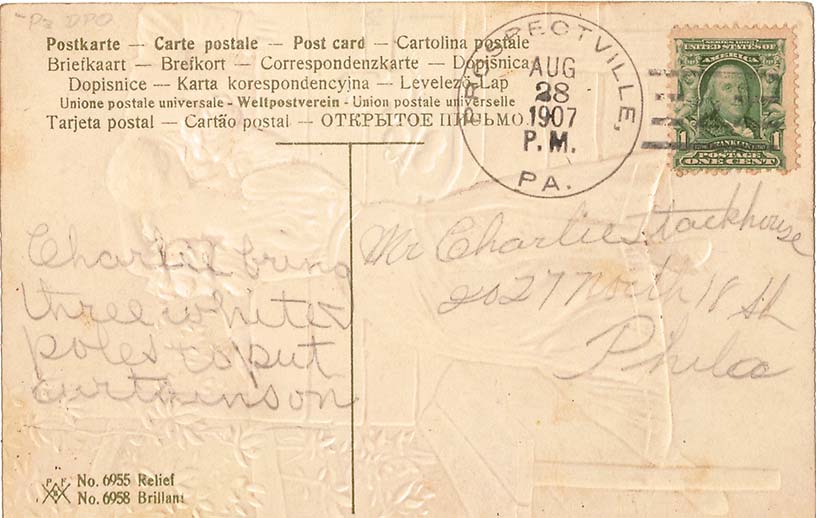 Pa DPO
Postkarte — Carte postale — Post card — Cartolina postale
Briefkaart — Brefkort — Correspondenzkarte — Dopišnica
Dopisnice — Karta korespondencyjna — Levelező-Lap
Unione postale universale - Weltpostverein - Union postale universelle
Tarjeta postal — Cartão postal — ОТКРЫТОЕ ПИСЬМО.
PROSPECTVILLE,
AUG
28
1907
P. M.
PA.
SERIES 1902
UNITED STATES OF
AMERICA
1 FRANKLIN 1
POSTAGE
ONE CENT
Charlie bring
three white
poles to put
curtains on
Mr Charlie Stackhouse
2027 North 18 St
Phila
P F
B
No. 6955 Relief
No. 6958 Brillant